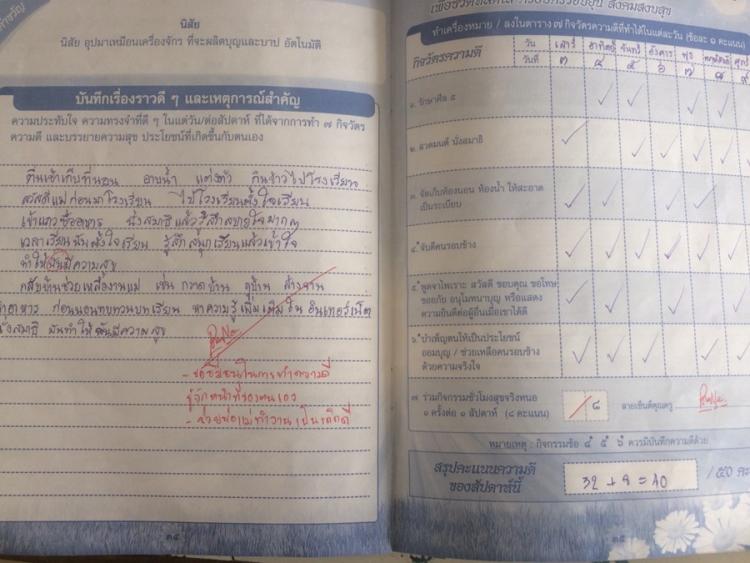 นิสัย
นิสัย อุปมาเหมือนเครื่องจักร ที่จะผลิตบุญและบาป อัตโนมัติ
บันทึกเรื่องราวดี ๆ และเหตุการณ์สำคัญ
ความประทับใจ ความทรงจำที่ดี ๆ ในแต่วัน/ต่อสัปดาห์ ที่ได้จากการทำ ๗ กิจวัตร
ความดี และบรรยายความสุข ประโยชน์ที่เกิดขึ้นกับตนเอง
ตื่นเช้าเก็บที่นอน อาบน้ำ แต่งตัว กินข้าวไปโรงเรียน
สวัสดีแม่ก่อนมาโรงเรียน ไปโรงเรียนตั้งใจเรียน
เข้าแถวซื้ออาหาร นั่งสมาธิแล้วรู้สึกสบายใจมากๆ
เวลาเรียนฉันตั้งใจเรียน รู้สึกสนุกเรียนแล้วเข้าใจ
ทำให้ฉันมีความสุข
กลับบ้านช่วยเหลืองานแม่ เช่น กวาดบ้าน ถูบ้าน ล้างจาน
อาหาร ก่อนนอนทบทวนบทเรียน หาความรู้เพิ่มเติมในอินเทอร์เน็ต
นั่งสมาธิ มันทำให้ฉันมีความสุข
- ขอชื่นชมในการทำความดี
รู้จักหน้าที่ของตนเอง
- ช่วยพ่อแม่ทำงานเป็นเด็กดี
๓๔
ทำเครื่องหมาย / ลงในตาราง ๗ กิจวัตรความดีที่ทำได้ในแต่ละวัน (ข้อละ ๑ คะแนน)
กิจวัตรความดี
วัน เสาร์ อาทิตย์ จันทร์ อังคาร พุธ พฤหัสบดี ศุกร์
วันที่ ๓ ๔ ๕ ๖ ๗ ๘ ๙
๑. รักษาศีล ๕
๒. สวดมนต์ นั่งสมาธิ
๓. จัดเก็บห้องนอน ห้องน้ำ ให้สะอาด
เป็นระเบียบ
๔. จับดีคนรอบข้าง
๕. พูดจาไพเราะ สวัสดี ขอบคุณ ขอโทษ
ขออภัย อนุโมทนาบุญ หรือแสดง
ความยินดีต่อผู้อื่นเมื่อเขาได้ดี
๖. บำเพ็ญตนให้เป็นประโยชน์
ออมบุญ / ช่วยเหลือคนรอบข้าง
ด้วยความจริงใจ
๗. ร่วมกิจกรรมชั่วโมงสุขจริงหนอ
๑ ครั้งต่อ ๑ สัปดาห์ (๘ คะแนน)
/ ๘
ลายเซ็นต์คุณครู
หมายเหตุ : กิจกรรมข้อ ๔ ๕ ๖ ควรมีบันทึกความดีด้วย
สรุปคะแนนความดี
ของสัปดาห์นี้
32 + 8 = 40
/ ๕๐ คะ
๓๕